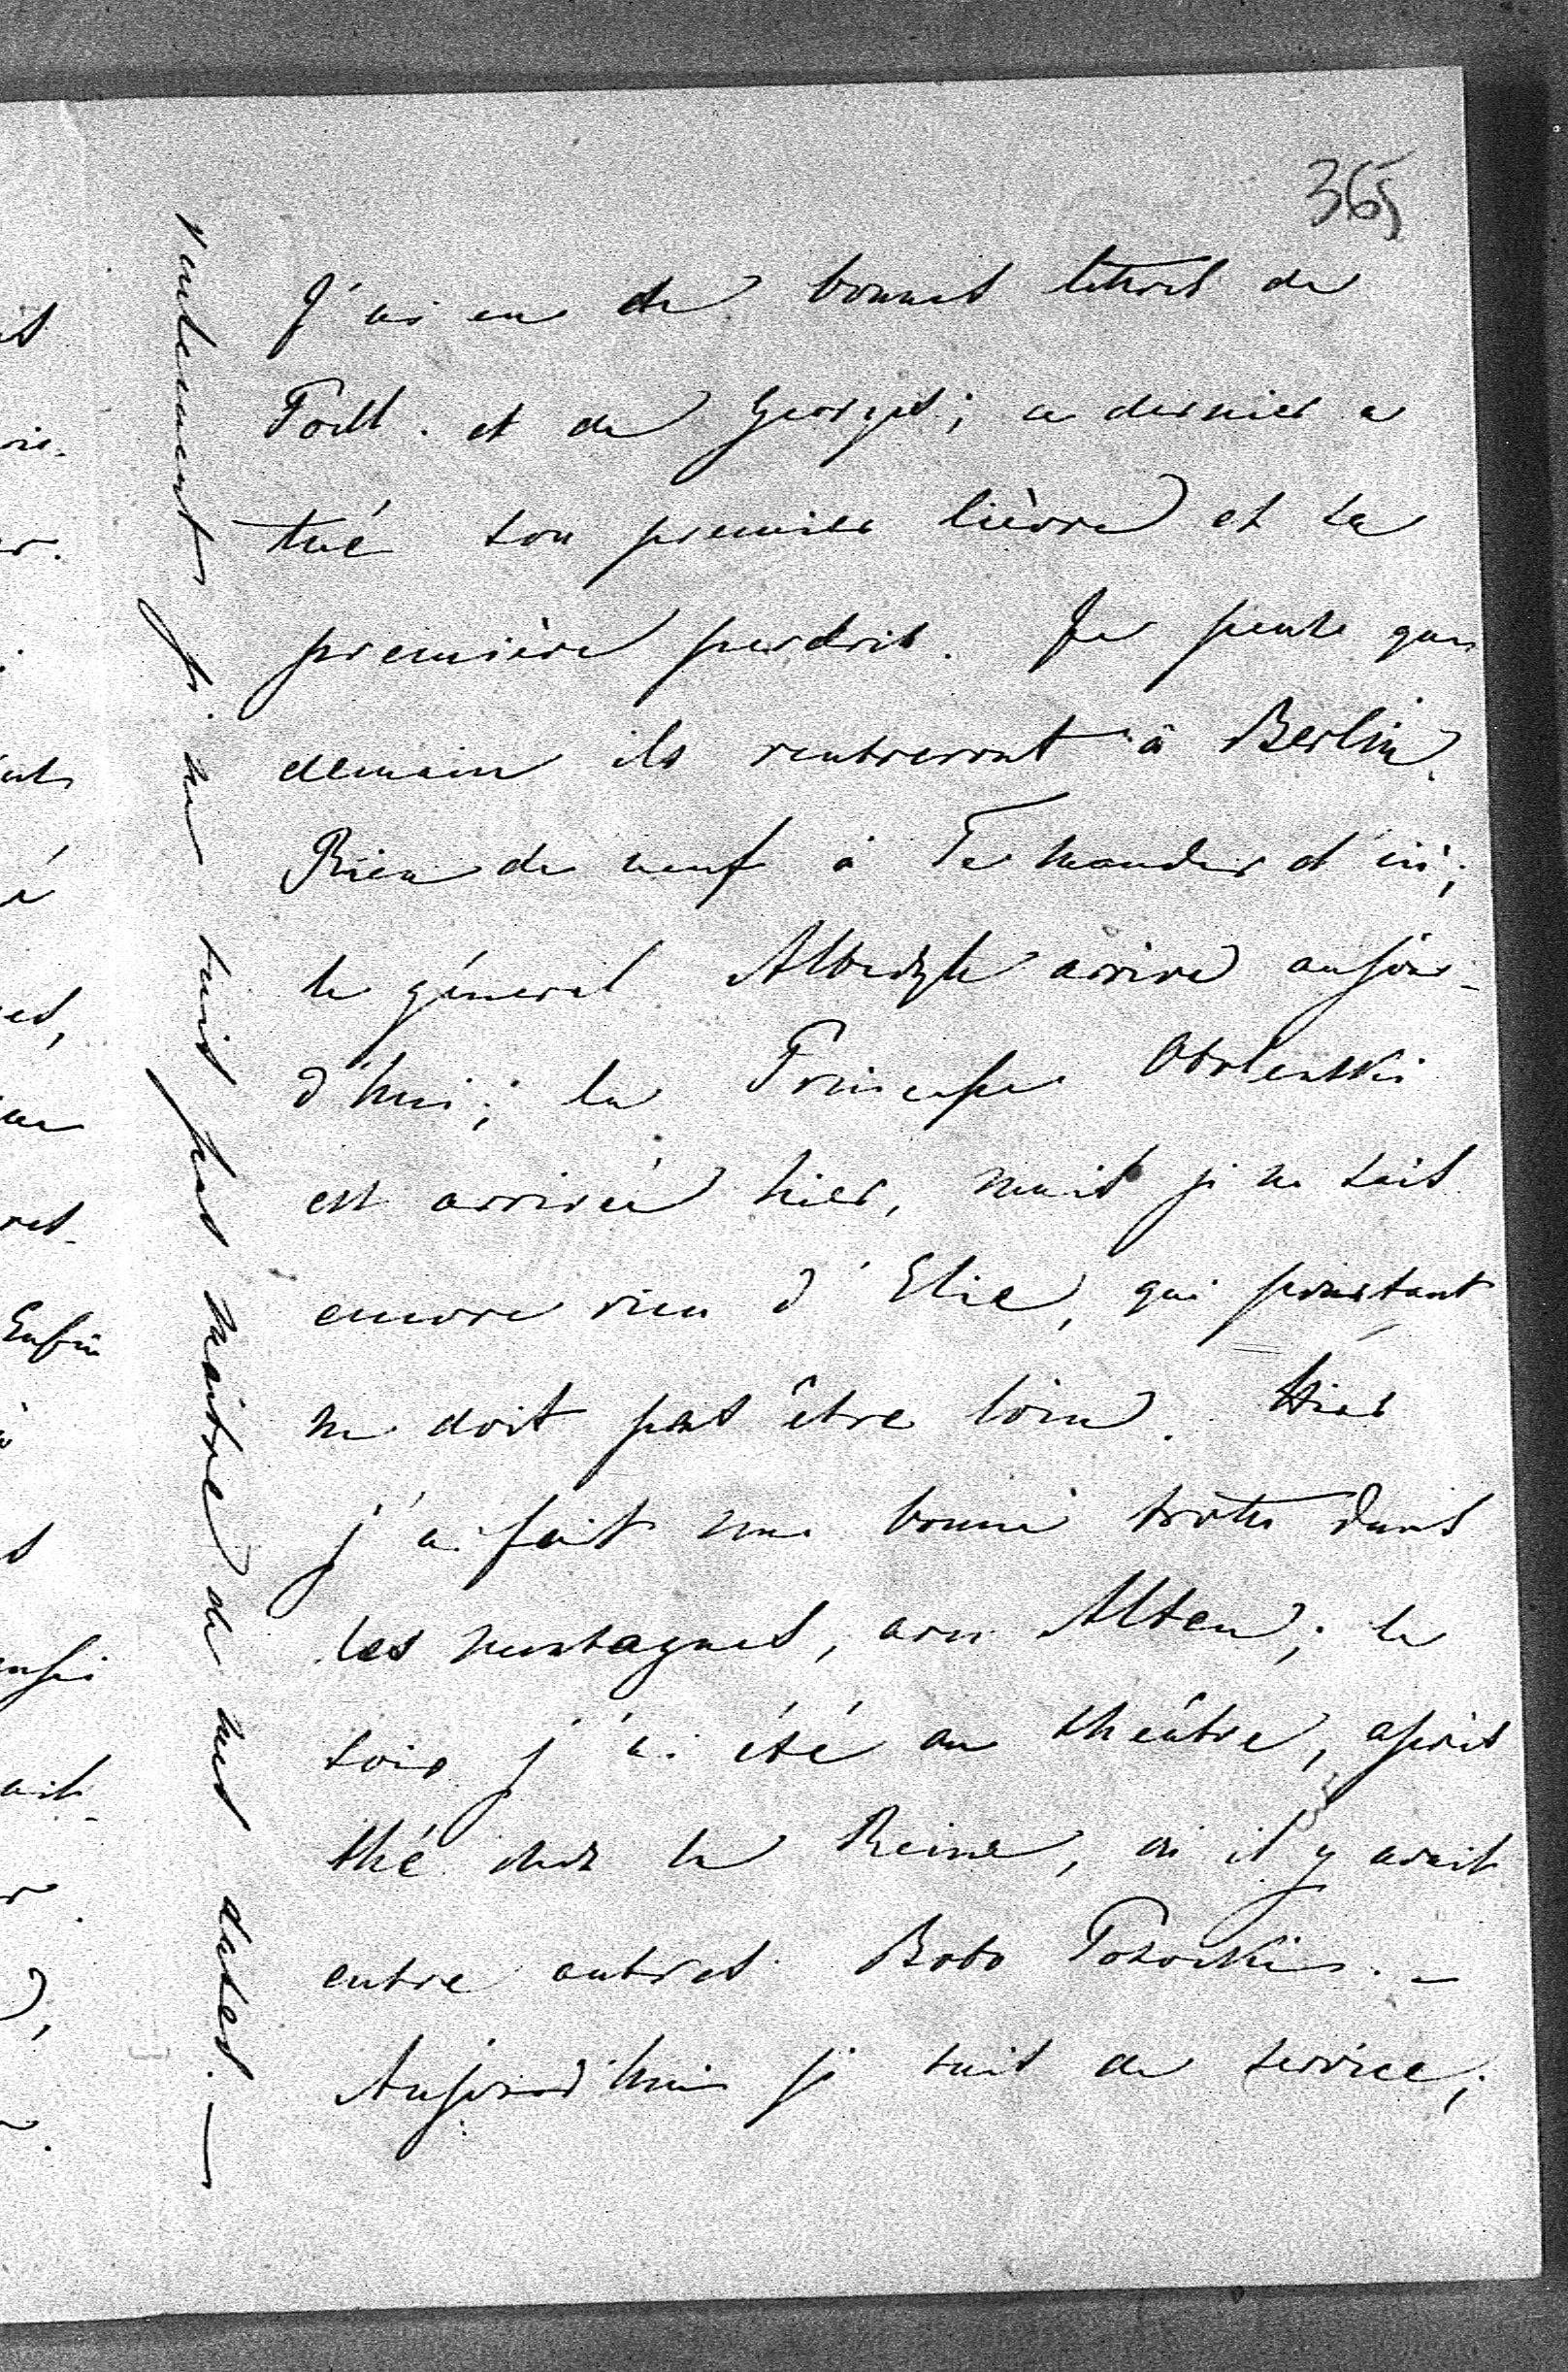 365
J'ai eu de bonnes lettres de
et de Georges; ce dernier a
tué son premier lièvre et sa
première perdrix. Je pense que
demain ils rentreront à Berlin.
Rien de neuf à Te mander d'ici;
le général Albedyle arrive aujour-
d'hui; la Princesse Obolenski
est arrivée hier, mais je ne sais
encore rien d'Elie, qui pourtant
ne doit pas être loin. Hier
j'ai fait une bonne trotte dans
les montagnes, avec Alten; le
soir j'ai été au théâtre, après
thé chez la Reine, où il y avait
entre autres Bobo Potocki. -
Aujourd'hui je suis de service;
seulement je ne suis pas maître de mes dates. —
Enfin